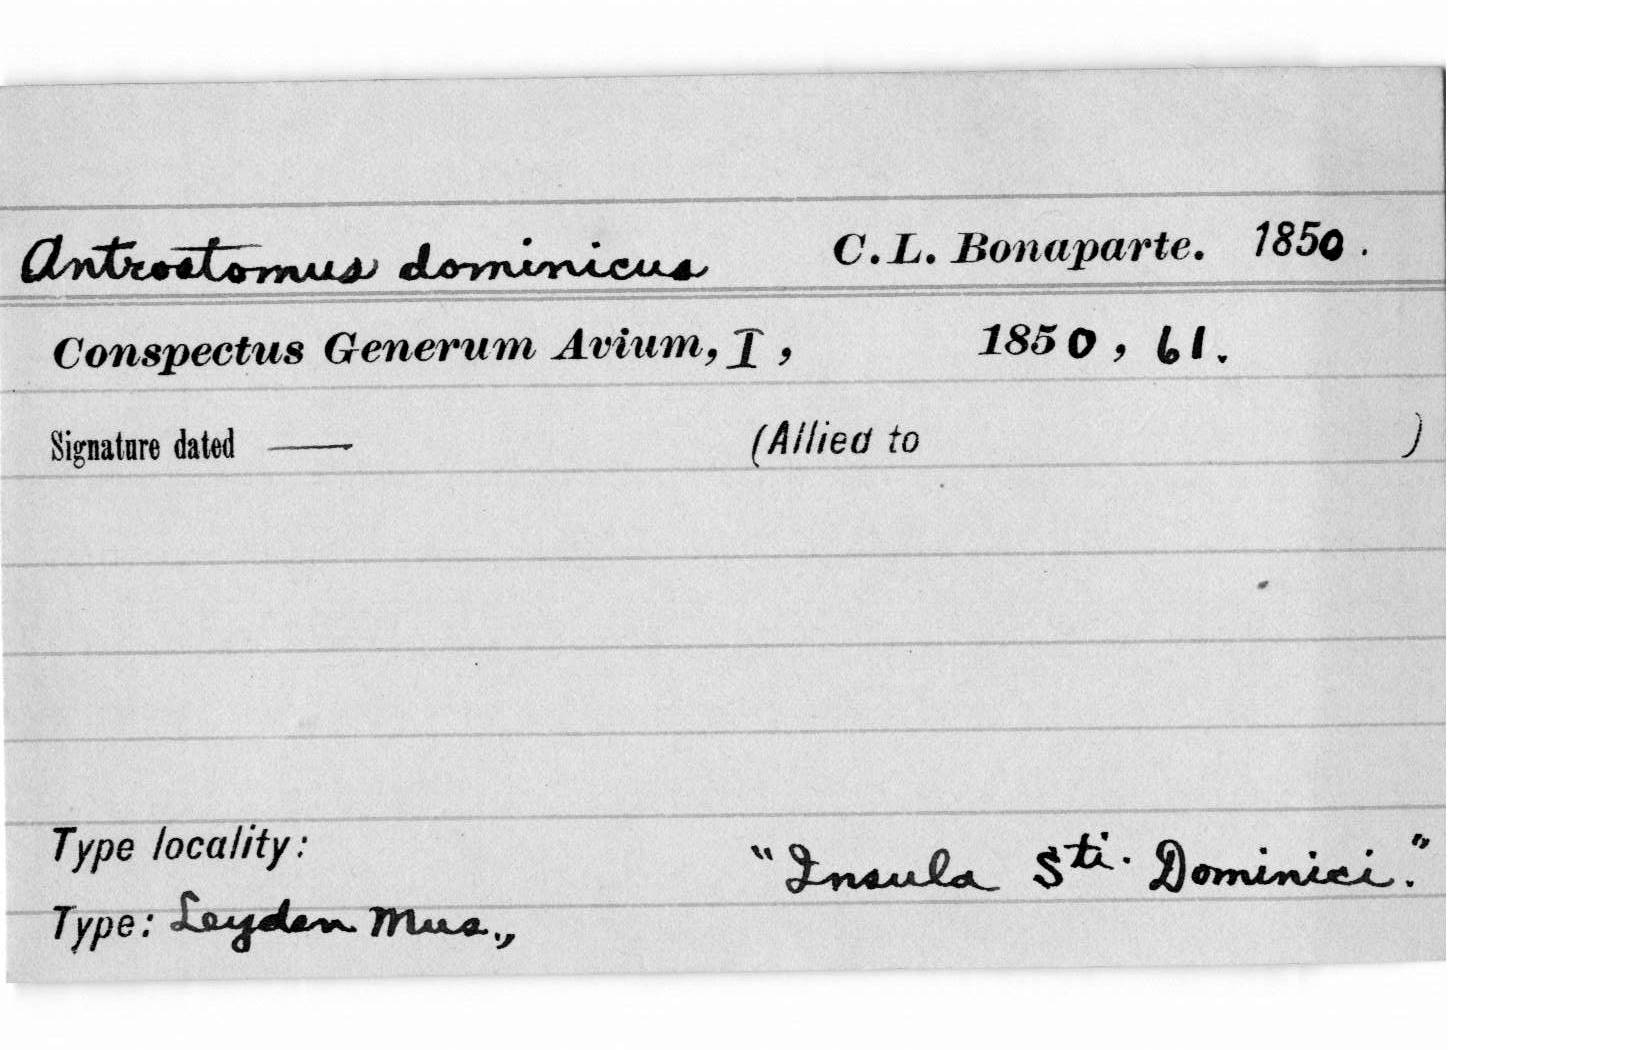 Antrostomus dominicus C. L. Bonaparte. 1850.
Conspectus Generum Avium, I, 1850, 61.
Signature dated — (Allied to )
Type locality: "Insula Sti. Dominici."
Type: Leyden Mus.,